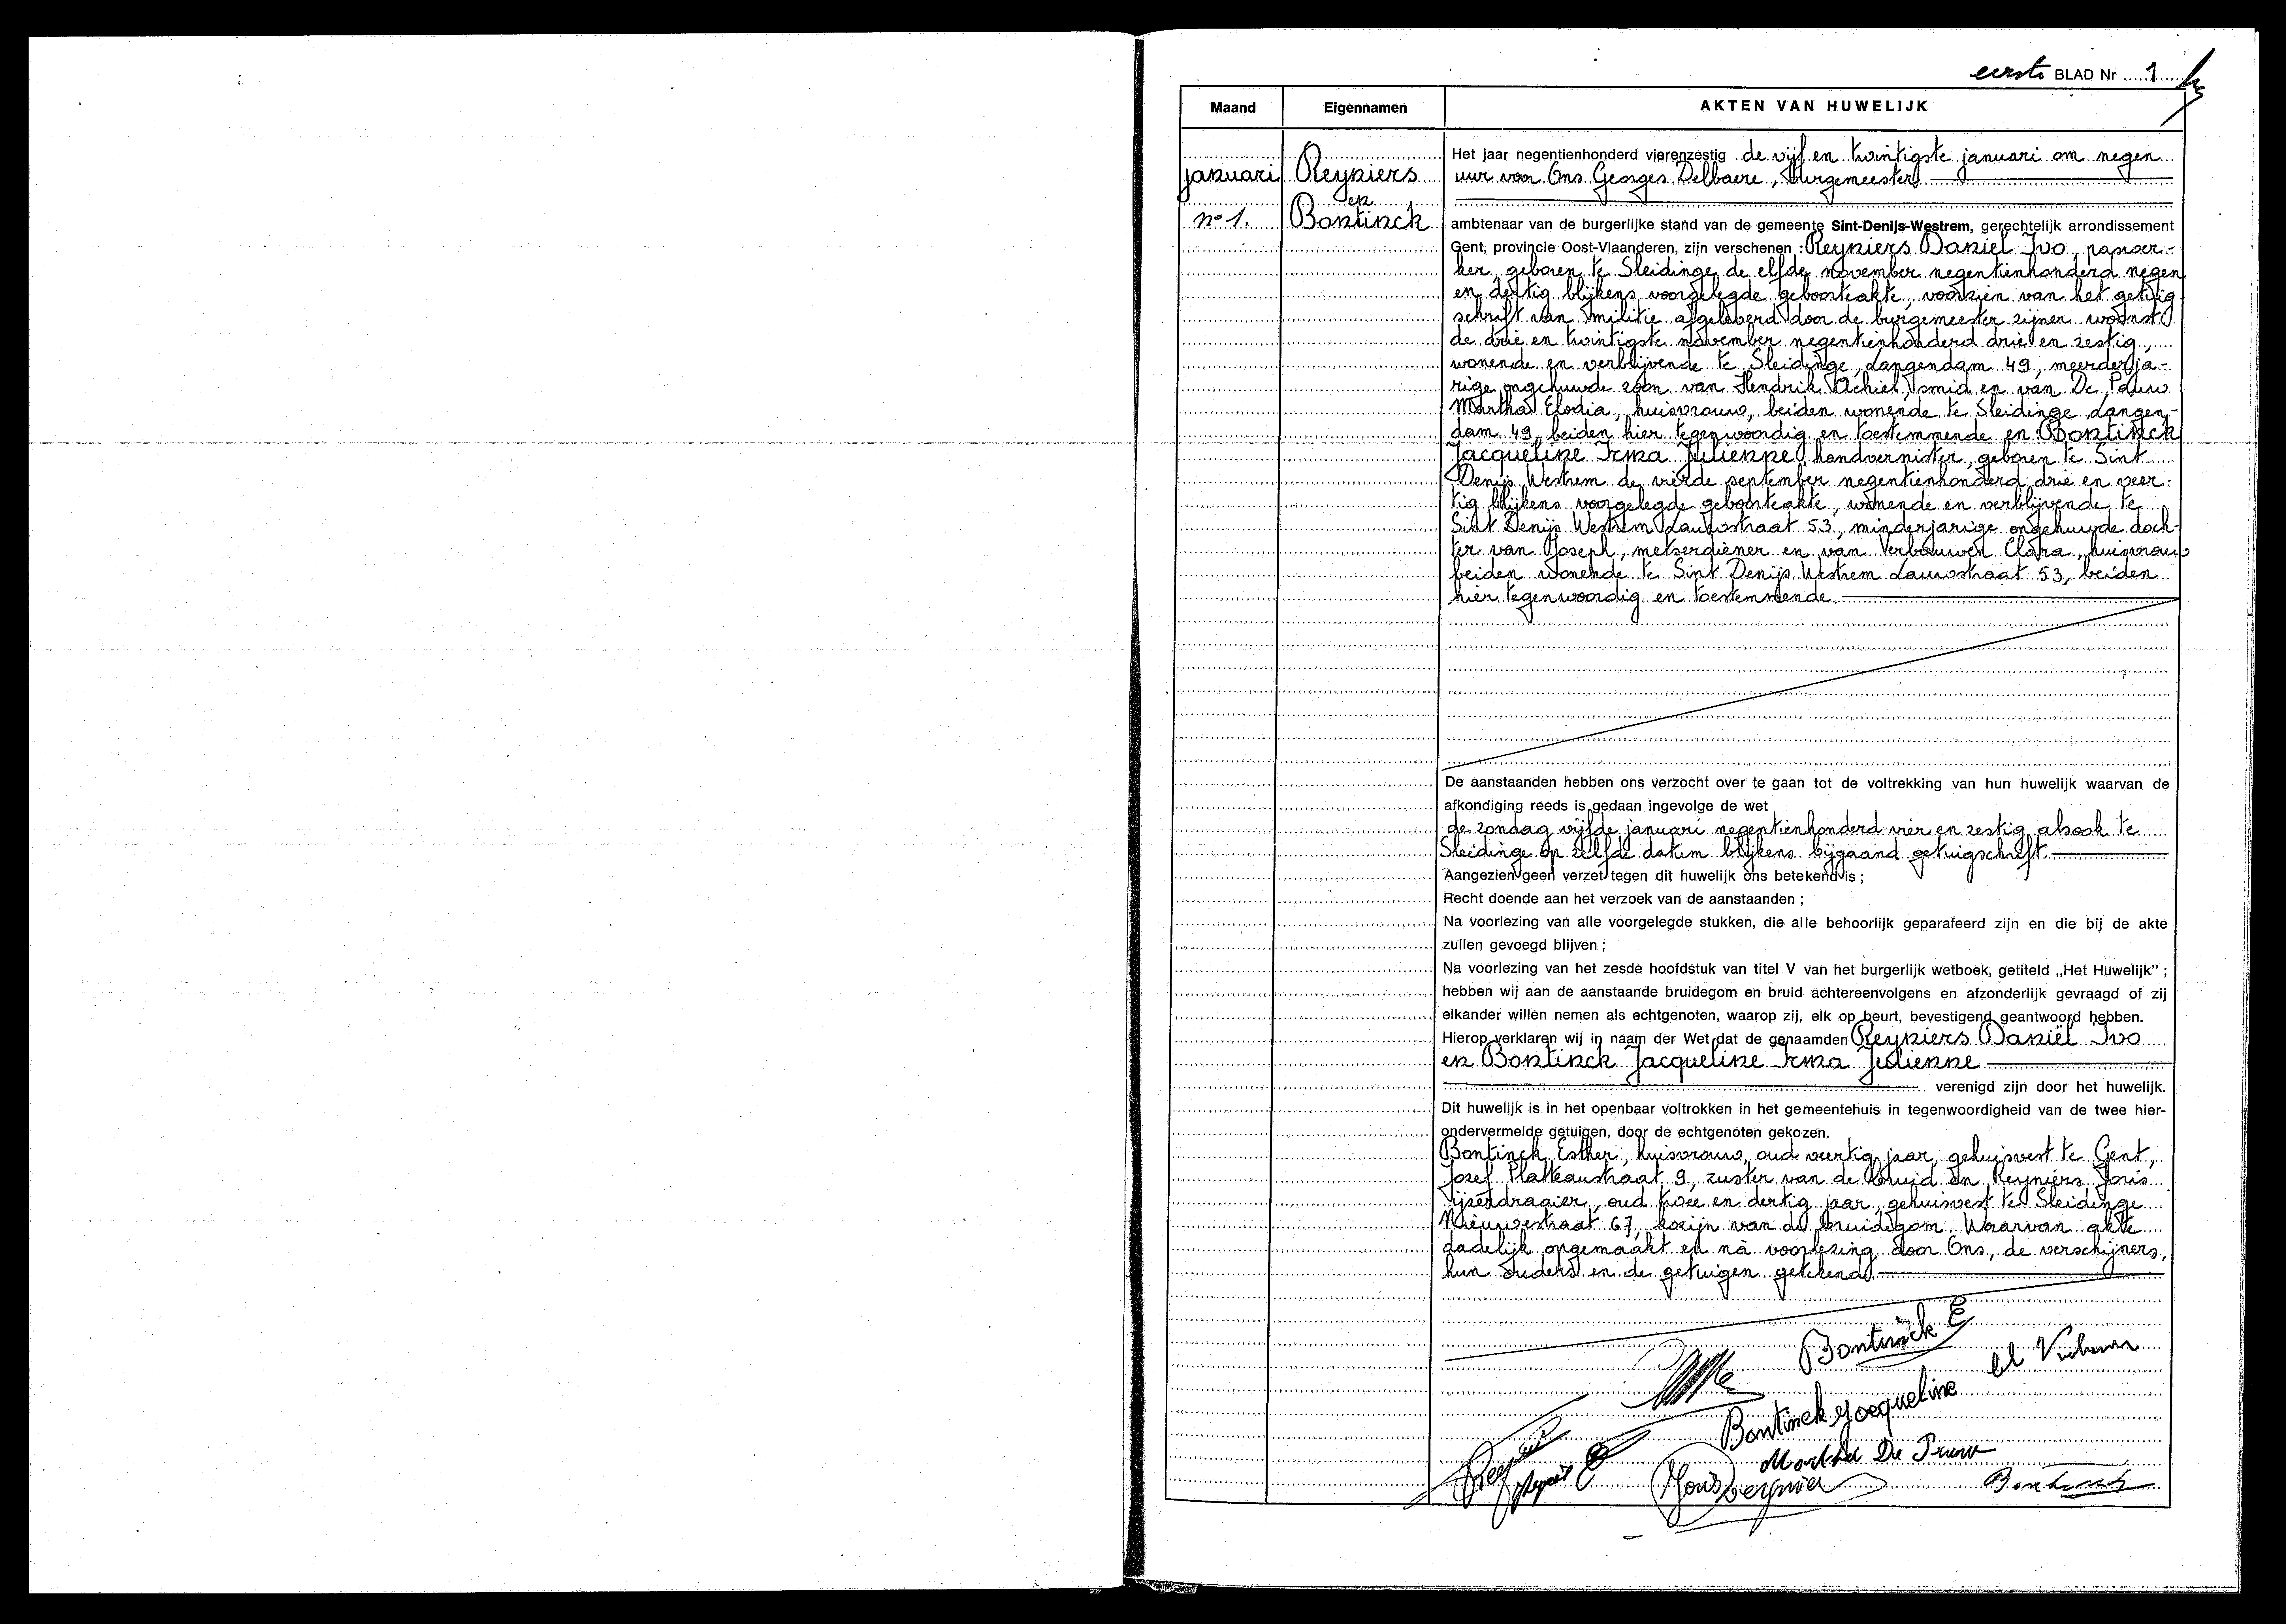 eerste BLAD Nr 1
Maand Eigennamen AKTEN VAN HUWELIJK
januari
n° 1.
Reyniers
en
Bontinck
Het jaar negentienhonderd vierenzestig de vijf en twintigste januari om negen
uur voor Ons Georges Delbaere, burgemeester
ambtenaar van de burgerlijke stand van de gemeente Sint-Denijs-Westrem, gerechtelijk arrondissement
Gent, provincie Oost-Vlaanderen, zijn verschenen : Reyniers Daniël Ivo,
ker, geboren te Sleidinge de elfde november negentienhonderd negen
en dertig blijkens voorgelegde geboorteakte, voorzien van het getuig
schrift van militie afgeleverd door de burgemeester zijner woonst
de drie en twintigste november negentienhonderd drie en zestig,
wonende en verblijvende te Sleidinge, Langendam 49, meerderja-
rige ongehuwde zoon van Hendrik Achiel, smid en van De Pauw
Martha Elodia, huisvrouw, beiden wonende te Sleidinge Langen-
dam 49, beiden hier tegenwoordig en toestemmende en Bontinck
Jacqueline Irma Julienne, handvernister, geboren te Sint
Denijs Westrem de vierde september negentienhonderd drie en veer-
tig blijkens voorgelegde geboorteakte, wonende en verblijvende te
Sint Denijs Westrem Lauwstraat 53, minderjarige ongehuwde doch-
ter van Joseph, metserdiener en van Verbauwen Clara, huisvrouw
beiden wonende te Sint Denijs Westrem Lauwstraat 53, beiden
hier tegenwoordig en toestemmende
De aanstaanden hebben ons verzocht over te gaan tot de voltrekking van hun huwelijk waarvan de
afkondiging reeds is gedaan ingevolge de wet
de zondag vijfde januari negentienhonderd vier en zestig alsook te
Sleidinge op zelfde datum blijkens bijgaand getuigschrift.
Aangezien geen verzet tegen dit huwelijk ons betekend is ;
Recht doende aan het verzoek van de aanstaanden ;
Na voorlezing van alle voorgelegde stukken, die alle behoorlijk geparafeerd zijn en die bij de akte
zullen gevoegd blijven ;
Na voorlezing van het zesde hoofdstuk van titel V van het burgerlijk wetboek, getiteld „Het Huwelijk" ;
hebben wij aan de aanstaande bruidegom en bruid achtereenvolgens en afzonderlijk gevraagd of zij
elkander willen nemen als echtgenoten, waarop zij, elk op beurt, bevestigend geantwoord hebben.
Hierop verklaren wij in naam der Wet dat de genaamden Reyniers Daniël Ivo
en Bontinck Jacqueline Irma Julienne
verenigd zijn door het huwelijk.
Dit huwelijk is in het openbaar voltrokken in het gemeentehuis in tegenwoordigheid van de twee hier-
ondervermelde getuigen, door de echtgenoten gekozen.
Bontinck Esther, huisvrouw, oud veertig jaar, gehuisvest te Gent,
Jozef Plateaustraat 9, zuster van de bruid en Reyniers Joris
ijzerdraaier, oud twee en dertig jaar, gehuisvest te Sleidinge
Nieuwestraat 67, kozijn van de bruidegom. Waarvan akte
dadelijk opgemaakt en nà voorlezing door Ons, de verschijners,
hun ouders en de getuigen getekend.
Bontinck E
Bontinck Jacqueline
Martha De Pauw
Joris Reyniers
Bontinck